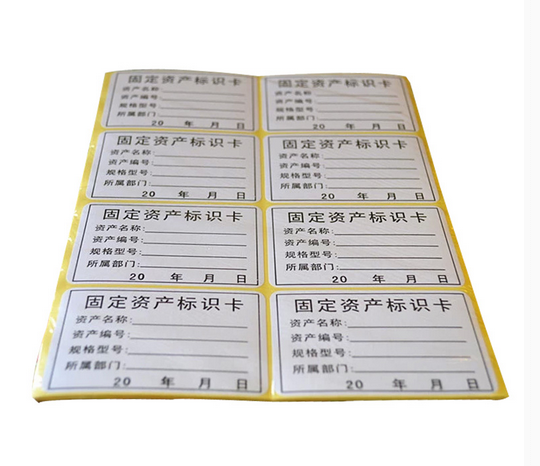 固定资产标识卡
资产名称:
资产编号:
规格型号:
所属部门:
20 年 月 日
固定资产标识卡
资产名称:
资产编号:
规格型号:
所属部门:
20 年 月 日
固定资产标识卡
资产名称:
资产编号:
规格型号:
所属部门:
20 年 月 日
固定资产标识卡
资产名称:
资产编号:
规格型号:
所属部门:
20 年 月 日
固定资产标识卡
资产名称:
资产编号:
规格型号:
所属部门:
20 年 月 日
固定资产标识卡
资产名称:
资产编号:
规格型号:
所属部门:
20 年 月 日
固定资产标识卡
资产名称:
资产编号:
规格型号:
所属部门:
20 年 月 日
固定资产标识卡
资产名称:
资产编号:
规格型号:
所属部门:
20 年 月 日